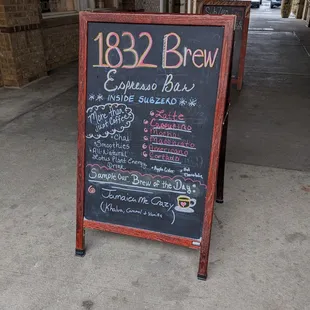 1832 Brew
Espresso Bar
INSIDE SUBZERO
More than
Just Coffee!
•Chai
•Smoothies
•All-Natural
Status Plant Energy
Drink
Latte
Cappucino
Mocha
Macchiato
Americano
Cortado
•Apple Cider
•Hot
Chocolate
Sample Our Brew of the Day
Jamaica Me Crazy
(Kahlua, Caramel & Vanilla)